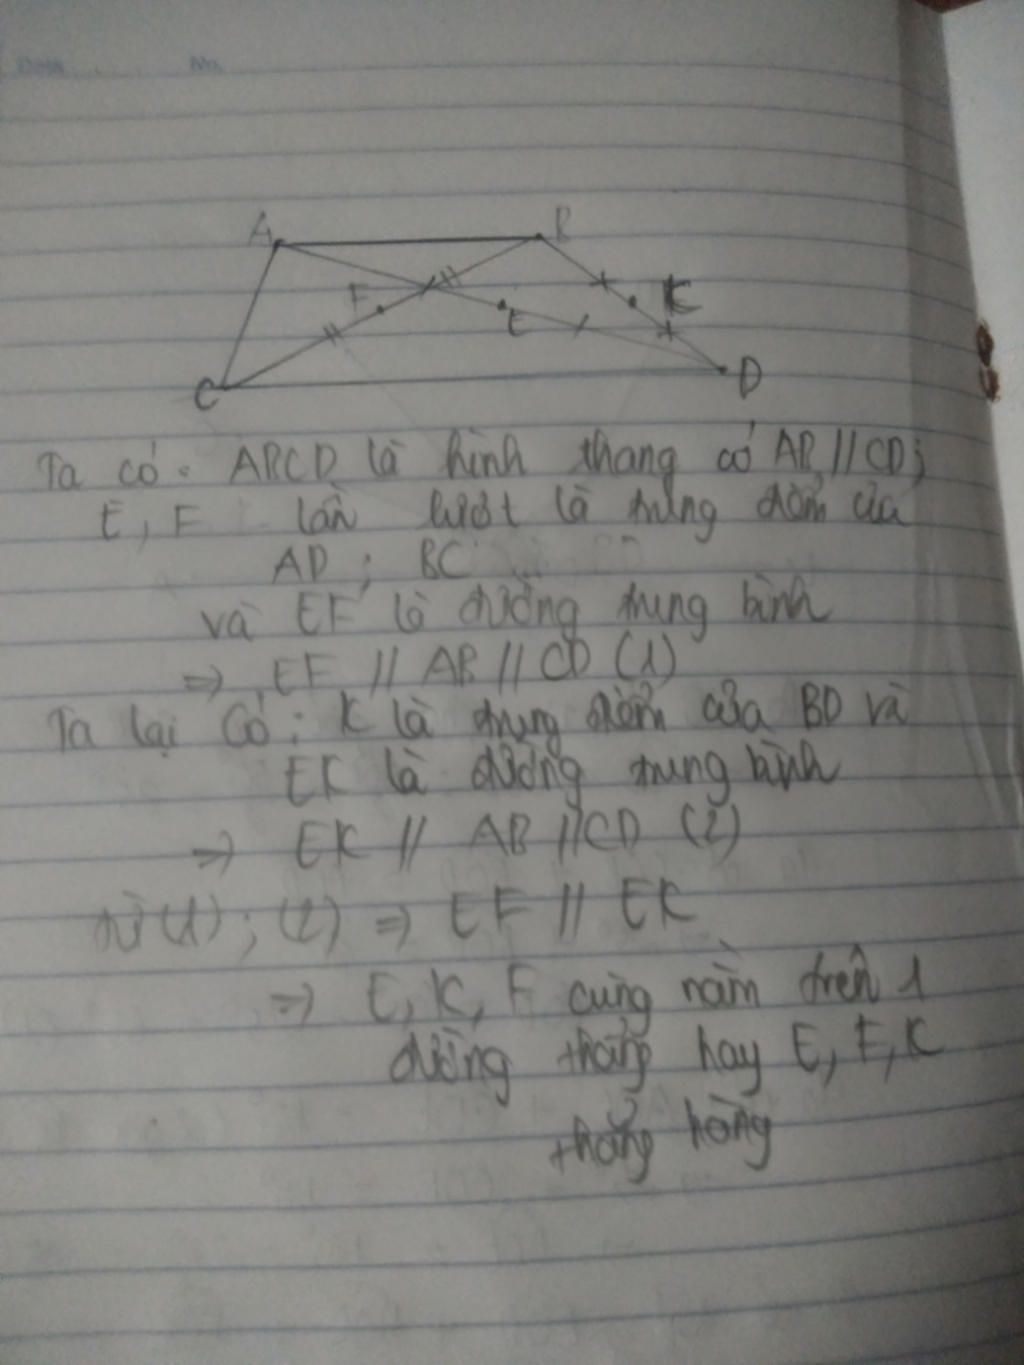 No.
A B
F K
E
C D
Ta có: ABCD là hình thang có AB // CD;
E, F lần lượt là trung điểm của
AD; BC
và EF là đường trung bình
=> EF // AB // CD (1)
Ta lại có: K là trung điểm của BD và
EK là đường trung bình
=> EK // AB // CD (2)
từ (1); (2) => EF // EK
=> E, K, F cùng nằm trên 1
đường thẳng hay E, F, K
thẳng hàng